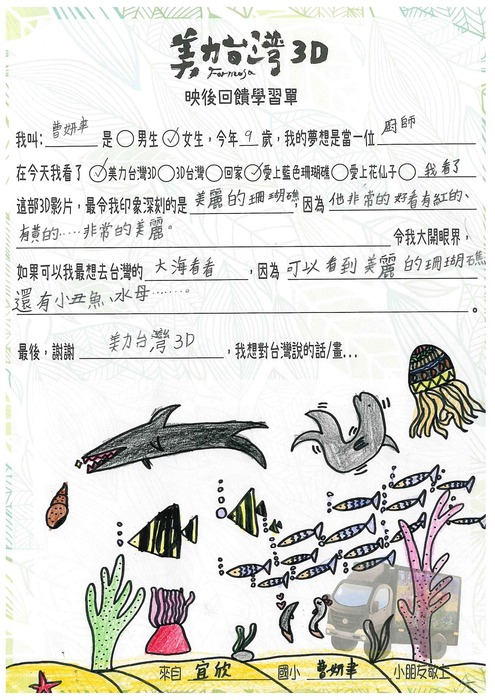 美力台灣3D
Formosa
映後回饋學習單
我叫:曹妍聿 是○男生✓女生，今年9歲，我的夢想是當一位廚師
在今天我看了✓美力台灣3D○3D台灣○回家✓愛上藍色珊瑚礁○愛上花仙子○ 我看了
這部3D影片，最令我印象深刻的是美麗的珊瑚礁，因為他非常的好看有紅的、
有黃的.....非常的美麗。令我大開眼界，
如果可以我最想去台灣的大海看看，因為可以看到美麗的珊瑚礁
還有小丑魚、水母.......。
最後，謝謝美力台灣3D，我想對台灣說的話/畫...
來自宜欣國小曹妍聿小朋友敬上